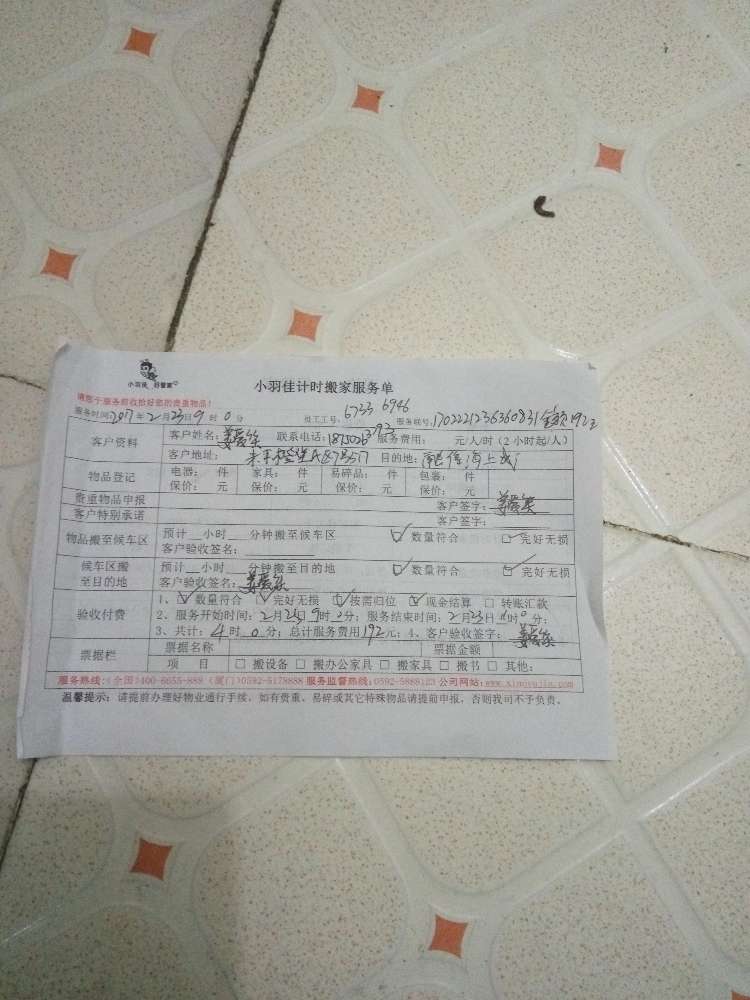 小羽佳 好管家
小羽佳计时搬家服务单
请您于服务前收拾好您的贵重物品!
服务时间:2017年2月23日9时0分 员工工号:6733 6946 服务联号:1702221236360831 金额192元
客户资料 客户姓名: 联系电话: 服务费用: 元/人/时(2小时起/人)
客户地址: 目的地:
物品登记 电器: 件 家具: 件 易碎品: 件 包装: 件
保价: 元 保价: 元 保价: 元 保价: 元
贵重物品申报 客户签字:
客户特别承诺 客户签字:
物品搬至候车区 预计__小时__分钟搬至候车区 数量符合 完好无损
客户验收签名:
候车区搬至目的地 预计__小时__分钟搬至目的地 数量符合 完好无损
客户验收签名:
验收付费 1、数量符合 完好无损 按需归位 现金结算 □ 转账汇款
2、服务开始时间:2月23日9时0分;服务结束时间:2月23日 时0分;
3、共计:4时0分;总计服务费用192元;4、客户验收签字:
票据栏 票据名称 票据金额
项目 □ 搬设备 □ 搬办公家具 □ 搬家具 □ 搬书 □ 其他:
服务热线:(全国)400-6655-888 (厦门)0592-5178888 服务监督热线:0592-5888123 公司网站:www.xiaoyujia.com
温馨提示:请提前办理好物业通行手续,如有贵重、易碎或其它特殊物品请提前申报,否则我司不予负责。